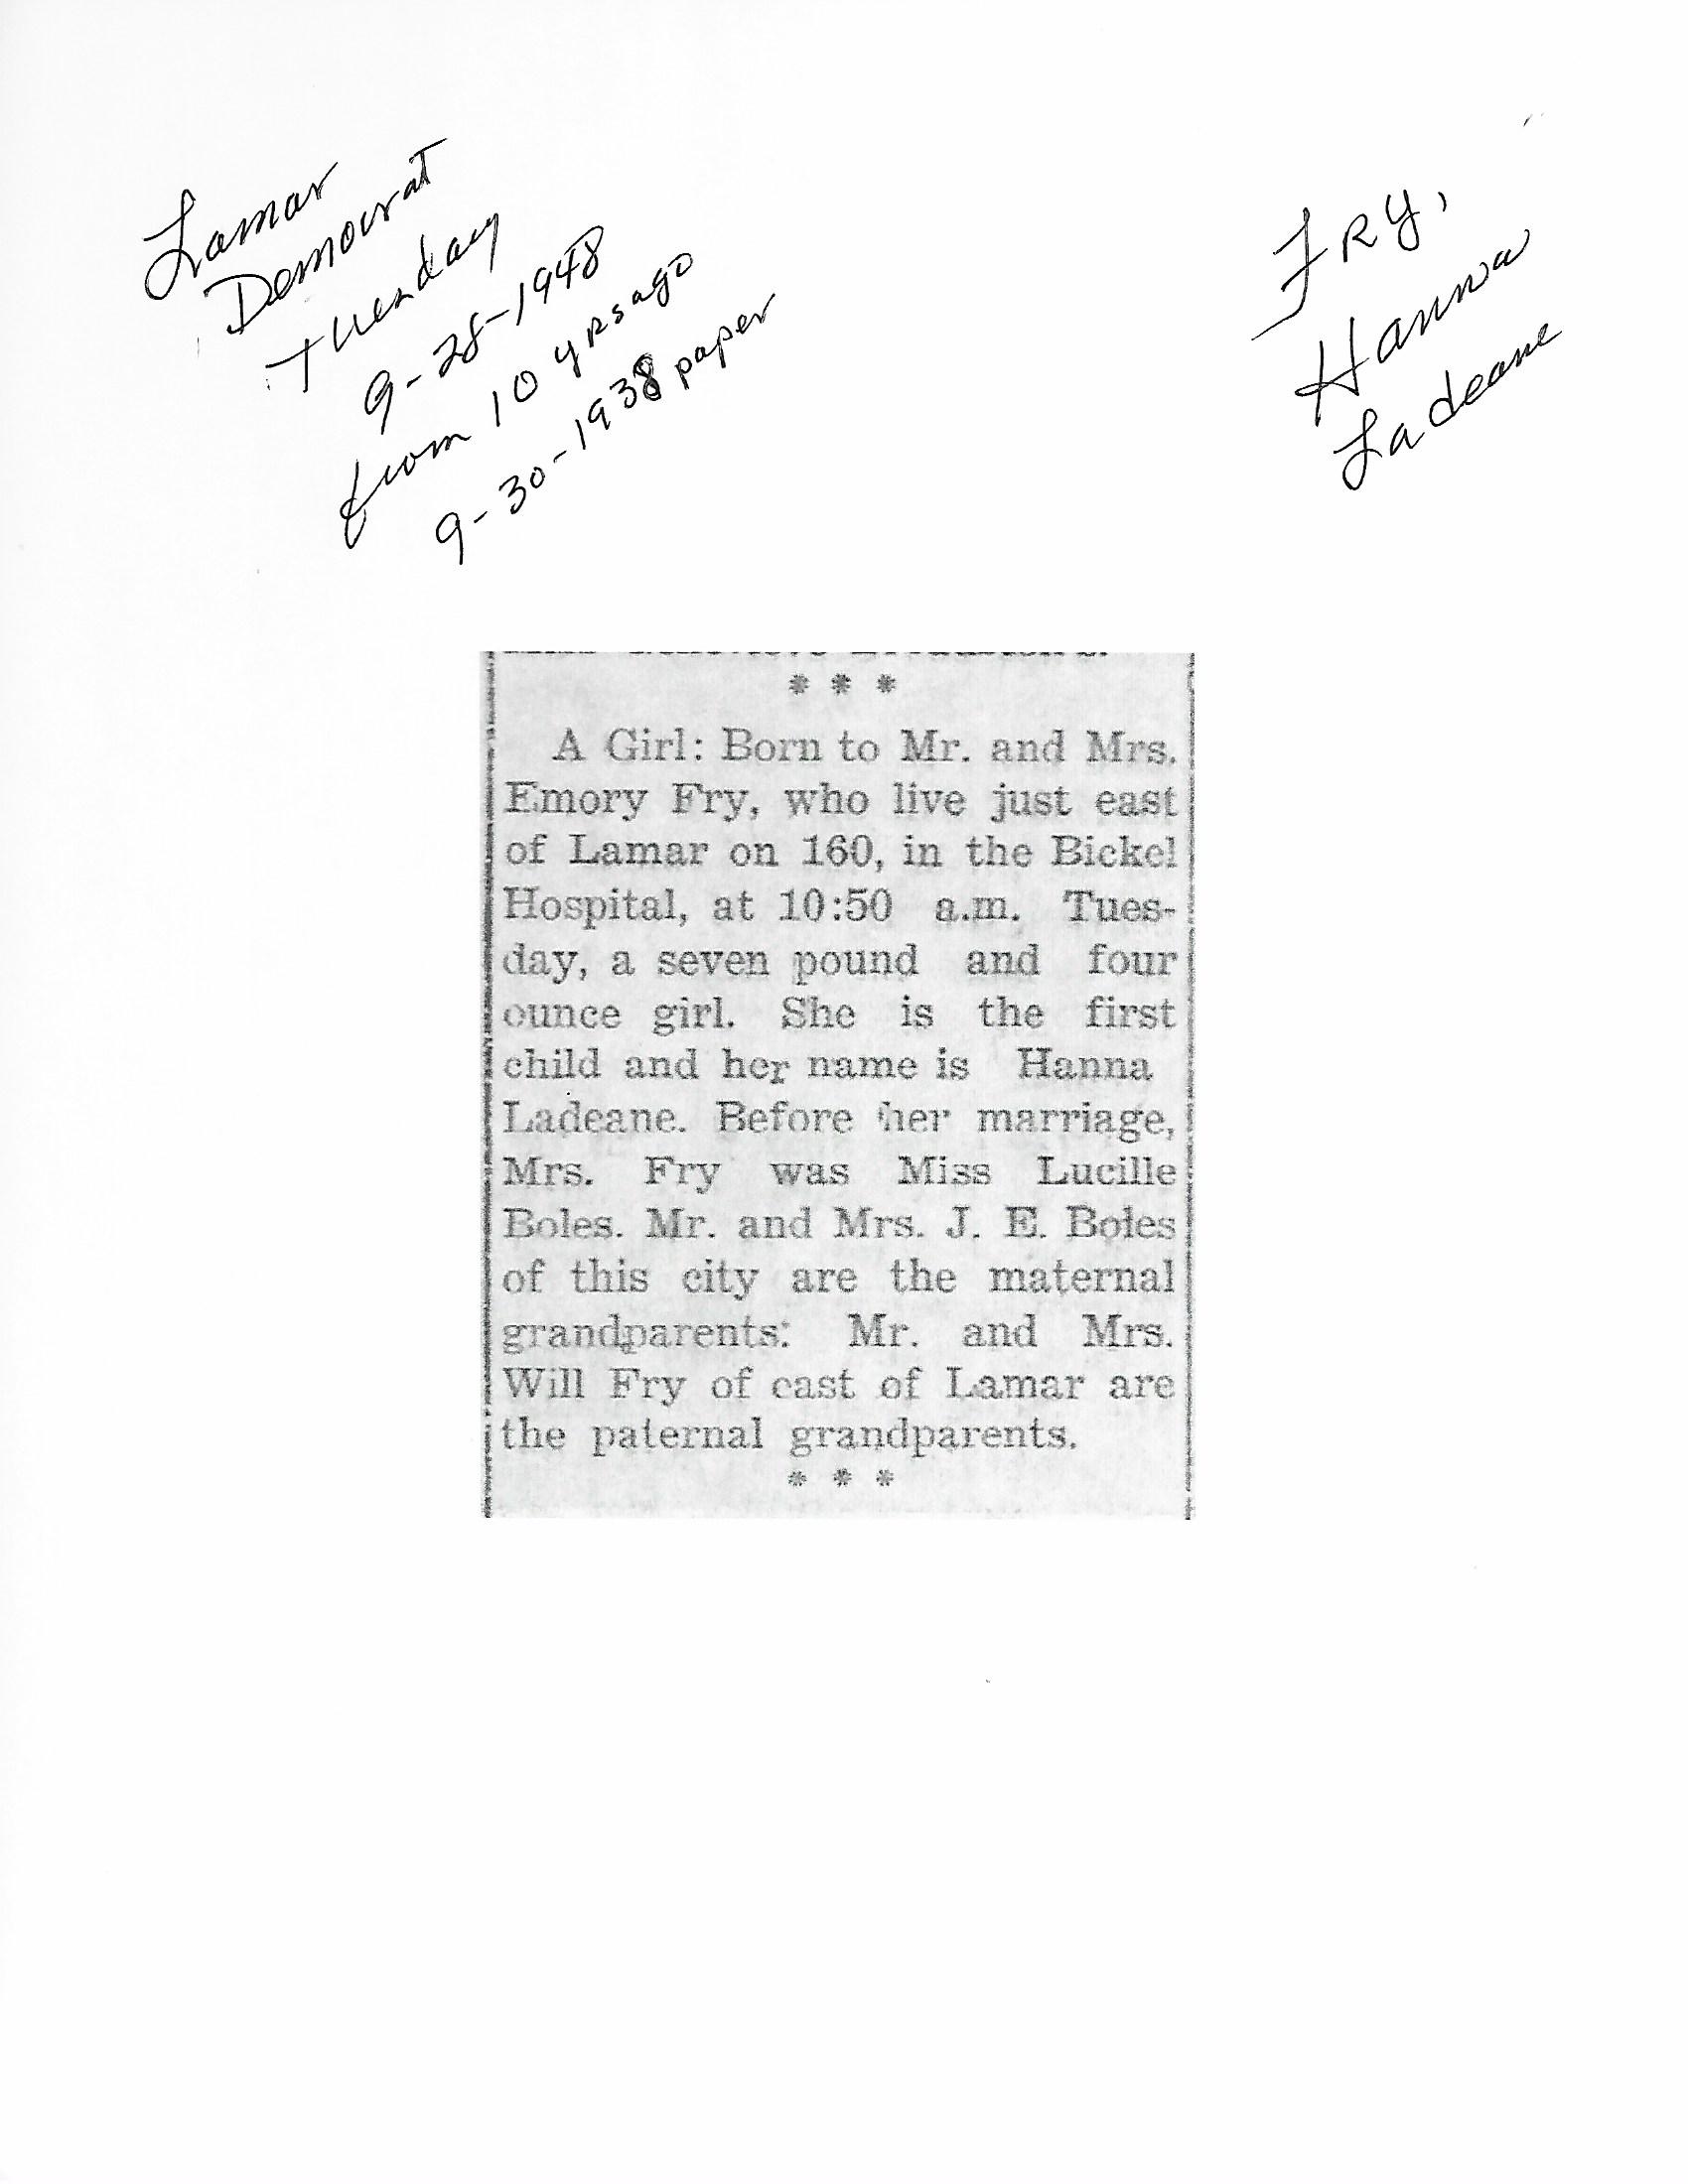 Lamar
Democrat
Tuesday
9-28-1948
from 10 yrs ago
9-30-1938 paper
FRY,
Hanna
Ladeane
* * *
A Girl: Born to Mr. and Mrs.
Emory Fry, who live just east
of Lamar on 160, in the Bickel
Hospital, at 10:50 a.m. Tues-
day, a seven pound and four
ounce girl. She is the first
child and her name is Hanna
Ladeane. Before her marriage,
Mrs. Fry was Miss Lucille
Boles. Mr. and Mrs. J. E. Boles
of this city are the maternal
grandparents: Mr. and Mrs.
Will Fry of east of Lamar are
the paternal grandparents.
* * *